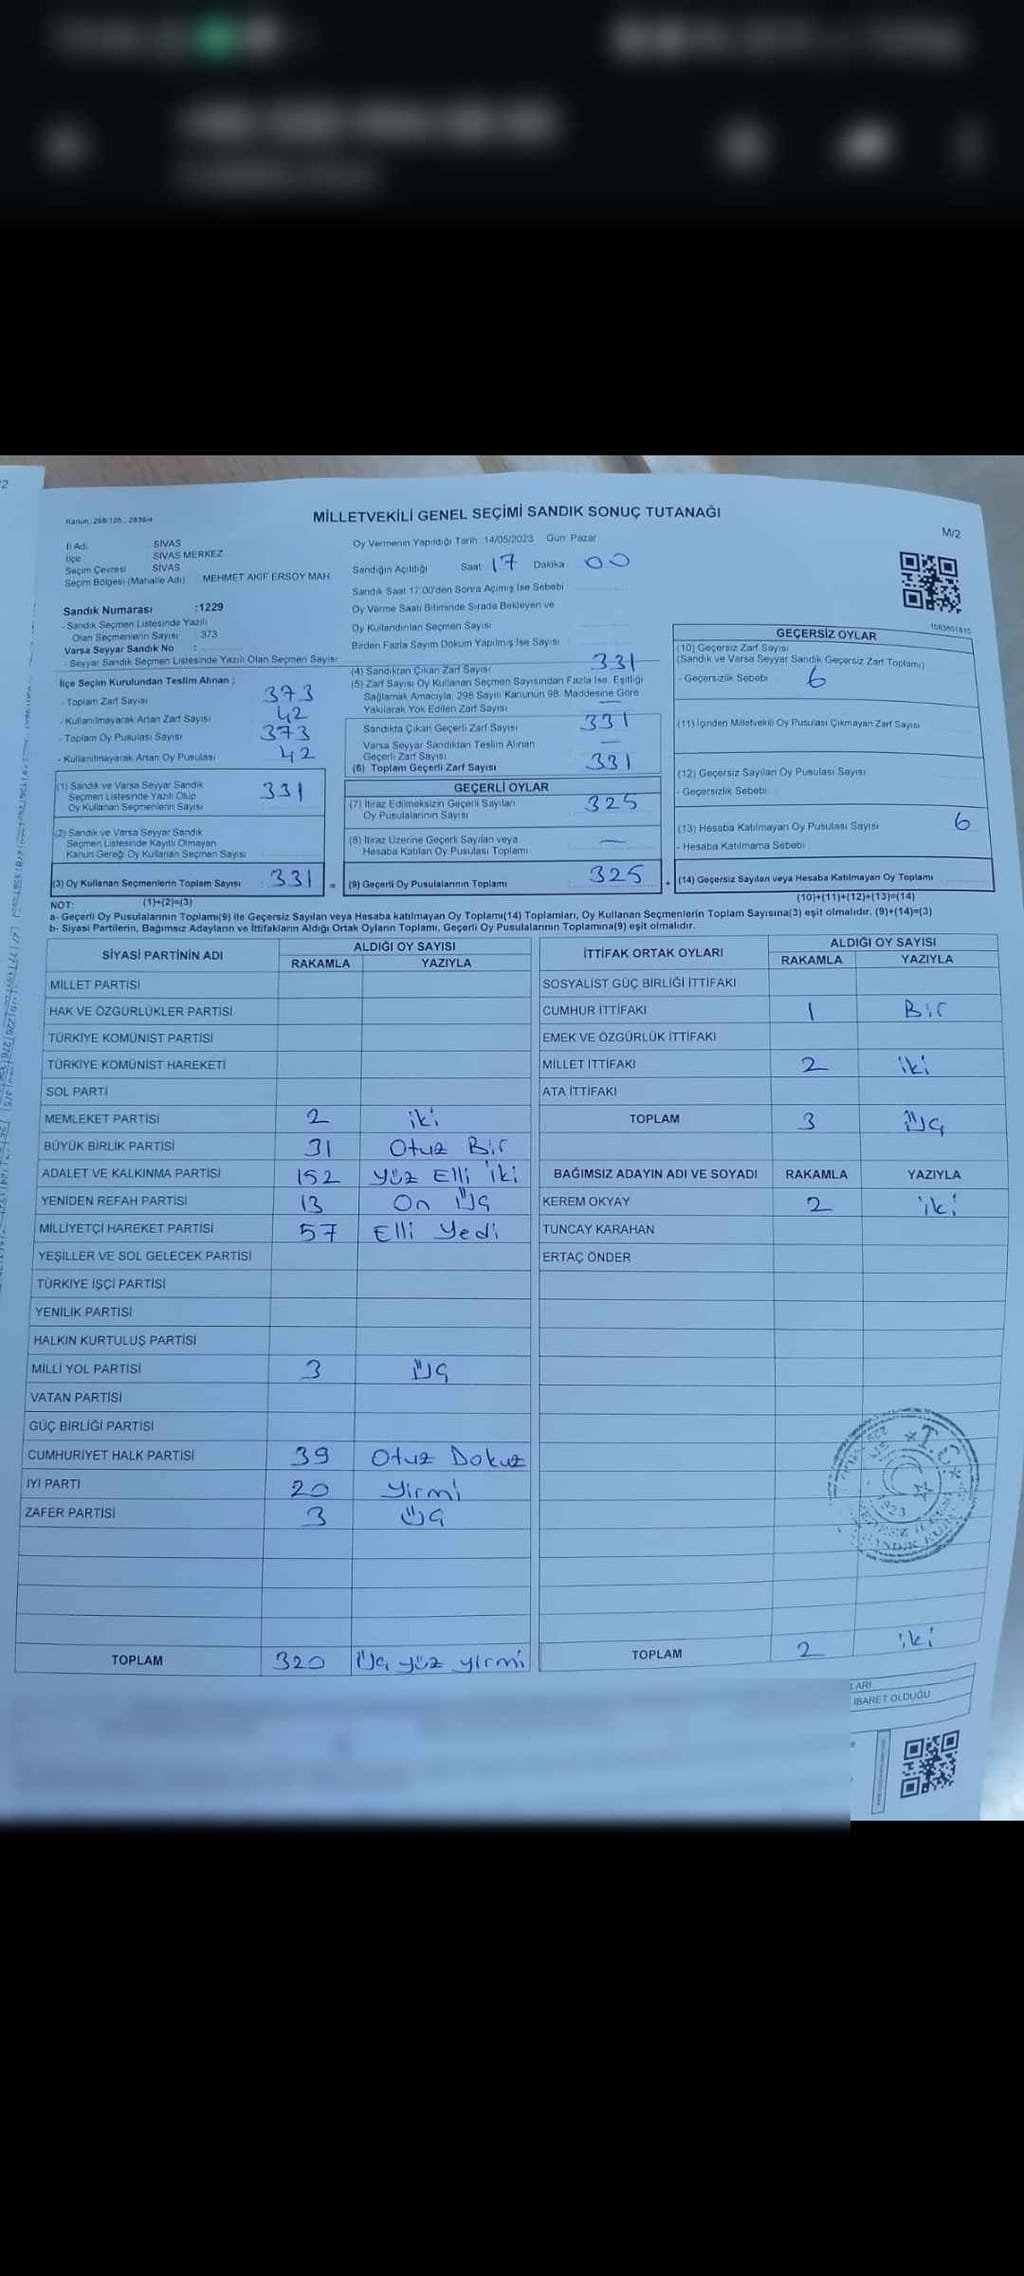 MİLLETVEKİLİ GENEL SEÇİMİ SANDIK SONUÇ TUTANAĞI
M/2
İl Adı SİVAS
İlçe SİVAS MERKEZ
Seçim Çevresi SİVAS
Seçim Bölgesi (Mahalle Adı) MEHMET AKİF ERSOY MAH.
Sandık Numarası :1229
- Sandık Seçmen Listesinde Yazılı
Olan Seçmenlerin Sayısı 373
Varsa Seyyar Sandık No :
- Seyyar Sandık Seçmen Listesinde Yazılı Olan Seçmen Sayısı
İlçe Seçim Kurulundan Teslim Alınan ;
- Toplam Zarf Sayısı 373
- Kullanılmayarak Artan Zarf Sayısı 42
- Toplam Oy Pusulası Sayısı 373
- Kullanılmayarak Artan Oy Pusulası 42
(1) Sandık ve Varsa Seyyar Sandık
Seçmen Listesinde Yazılı Olup
Oy Kullanan Seçmenlerin Sayısı 331
(2) Sandık ve Varsa Seyyar Sandık
Seçmen Listesinde Kayıtlı Olmayan
Kanun Gereği Oy Kullanan Seçmen Sayısı
(3) Oy Kullanan Seçmenlerin Toplam Sayısı : 331 =
(1)+(2)=(3)
Oy Vermenin Yapıldığı Tarih :14/05/2023 Gün: Pazar
Sandığın Açıldığı Saat 17 Dakika 00
Sandık Saat 17:00'den Sonra Açılmış İse Sebebi
Oy Verme Saati Bitiminde Sırada Bekleyen ve
Oy Kullandırılan Seçmen Sayısı
Birden Fazla Sayım Döküm Yapılmış İse Sayısı
(4) Sandıktan Çıkan Zarf Sayısı 331
(5) Zarf Sayısı Oy Kullanan Seçmen Sayısından Fazla İse, Eşitliği
Sağlamak Amacıyla, 298 Sayılı Kanunun 98. Maddesine Göre
Yakılarak Yok Edilen Zarf Sayısı —
Sandıkta Çıkan Geçerli Zarf Sayısı 331
Varsa Seyyar Sandıktan Teslim Alınan
Geçerli Zarf Sayısı —
(6) Toplam Geçerli Zarf Sayısı 331
GEÇERLİ OYLAR
(7) İtiraz Edilmeksizin Geçerli Sayılan
Oy Pusulalarının Sayısı 325
(8) İtiraz Üzerine Geçerli Sayılan veya
Hesaba Katılan Oy Pusulası Toplamı —
(9) Geçerli Oy Pusulalarının Toplamı 325 +
GEÇERSİZ OYLAR
(10) Geçersiz Zarf Sayısı
(Sandık ve Varsa Seyyar Sandık Geçersiz Zarf Toplamı)
- Geçersizlik Sebebi 6
(11) İçinden Milletvekili Oy Pusulası Çıkmayan Zarf Sayısı
(12) Geçersiz Sayılan Oy Pusulası Sayısı
- Geçersizlik Sebebi
(13) Hesaba Katılmayan Oy Pusulası Sayısı 6
- Hesaba Katılmama Sebebi
(14) Geçersiz Sayılan veya Hesaba Katılmayan Oy Toplamı
(10)+(11)+(12)+(13)=(14)
NOT:
a- Geçerli Oy Pusulalarının Toplamı(9) ile Geçersiz Sayılan veya Hesaba katılmayan Oy Toplamı(14) Toplamları, Oy Kullanan Seçmenlerin Toplam Sayısına(3) eşit olmalıdır. (9)+(14)=(3)
b- Siyasi Partilerin, Bağımsız Adayların ve İttifakların Aldığı Ortak Oyların Toplamı, Geçerli Oy Pusulalarının Toplamına(9) eşit olmalıdır.
SİYASİ PARTİNİN ADI ALDIĞI OY SAYISI
RAKAMLA YAZIYLA
MİLLET PARTİSİ
HAK VE ÖZGÜRLÜKLER PARTİSİ
TÜRKİYE KOMÜNİST PARTİSİ
TÜRKİYE KOMÜNİST HAREKETİ
SOL PARTİ
MEMLEKET PARTİSİ 2 iki
BÜYÜK BİRLİK PARTİSİ 31 Otuz Bir
ADALET VE KALKINMA PARTİSİ 152 Yüz Elli iki
YENİDEN REFAH PARTİSİ 13 On Üç
MİLLİYETÇİ HAREKET PARTİSİ 57 Elli Yedi
YEŞİLLER VE SOL GELECEK PARTİSİ
TÜRKİYE İŞÇİ PARTİSİ
YENİLİK PARTİSİ
HALKIN KURTULUŞ PARTİSİ
MİLLİ YOL PARTİSİ 3 Üç
VATAN PARTİSİ
GÜÇ BİRLİĞİ PARTİSİ
CUMHURİYET HALK PARTİSİ 39 Otuz Dokuz
İYİ PARTİ 20 Yirmi
ZAFER PARTİSİ 3 Üç
TOPLAM 320 Üç yüz yirmi
İTTİFAK ORTAK OYLARI ALDIĞI OY SAYISI
RAKAMLA YAZIYLA
SOSYALİST GÜÇ BİRLİĞİ İTTİFAKI
CUMHUR İTTİFAKI 1 Bir
EMEK VE ÖZGÜRLÜK İTTİFAKI
MİLLET İTTİFAKI 2 iki
ATA İTTİFAKI
TOPLAM 3 Üç
BAĞIMSIZ ADAYIN ADI VE SOYADI RAKAMLA YAZIYLA
KEREM OKYAY 2 iki
TUNCAY KARAHAN
ERTAÇ ÖNDER
T.C.
TOPLAM 2 iki
LARI
İBARET OLDUĞU